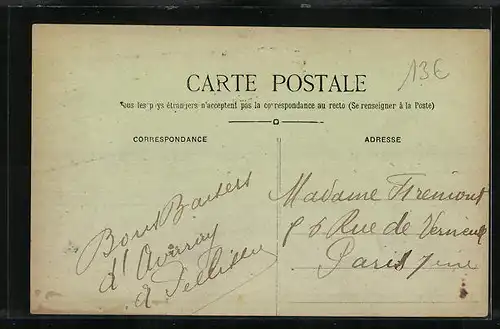 13€
CARTE POSTALE
Tous les pays étrangers n'acceptent pas la correspondance au recto (Se renseigner à la Poste)
CORRESPONDANCE
ADRESSE
Bons Baisers
d'Avaray
Madame Frémont
56 Rue de Verneuil
Paris 7ème